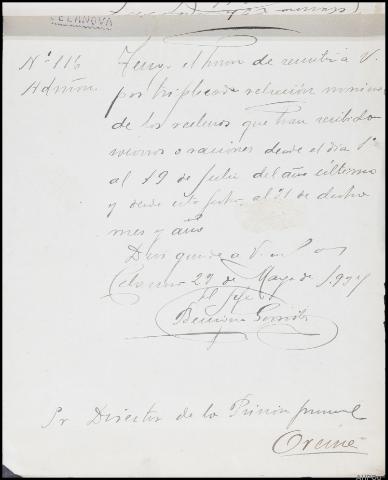 CELANOVA
Nº 116
Admon.
Tengo el honor de remitir a V.
por triplicado relación nominal
de los reclusos que han recibido
socorros o raciones desde el día 1º
al 19 de Julio del año último
y desde esta fecha al 31 de dicho
mes y año
Dios guarde a V. m. a.
Celanova 29 de Mayo de 193
El Jefe
Sr Director de la Prisión provincial
Orense